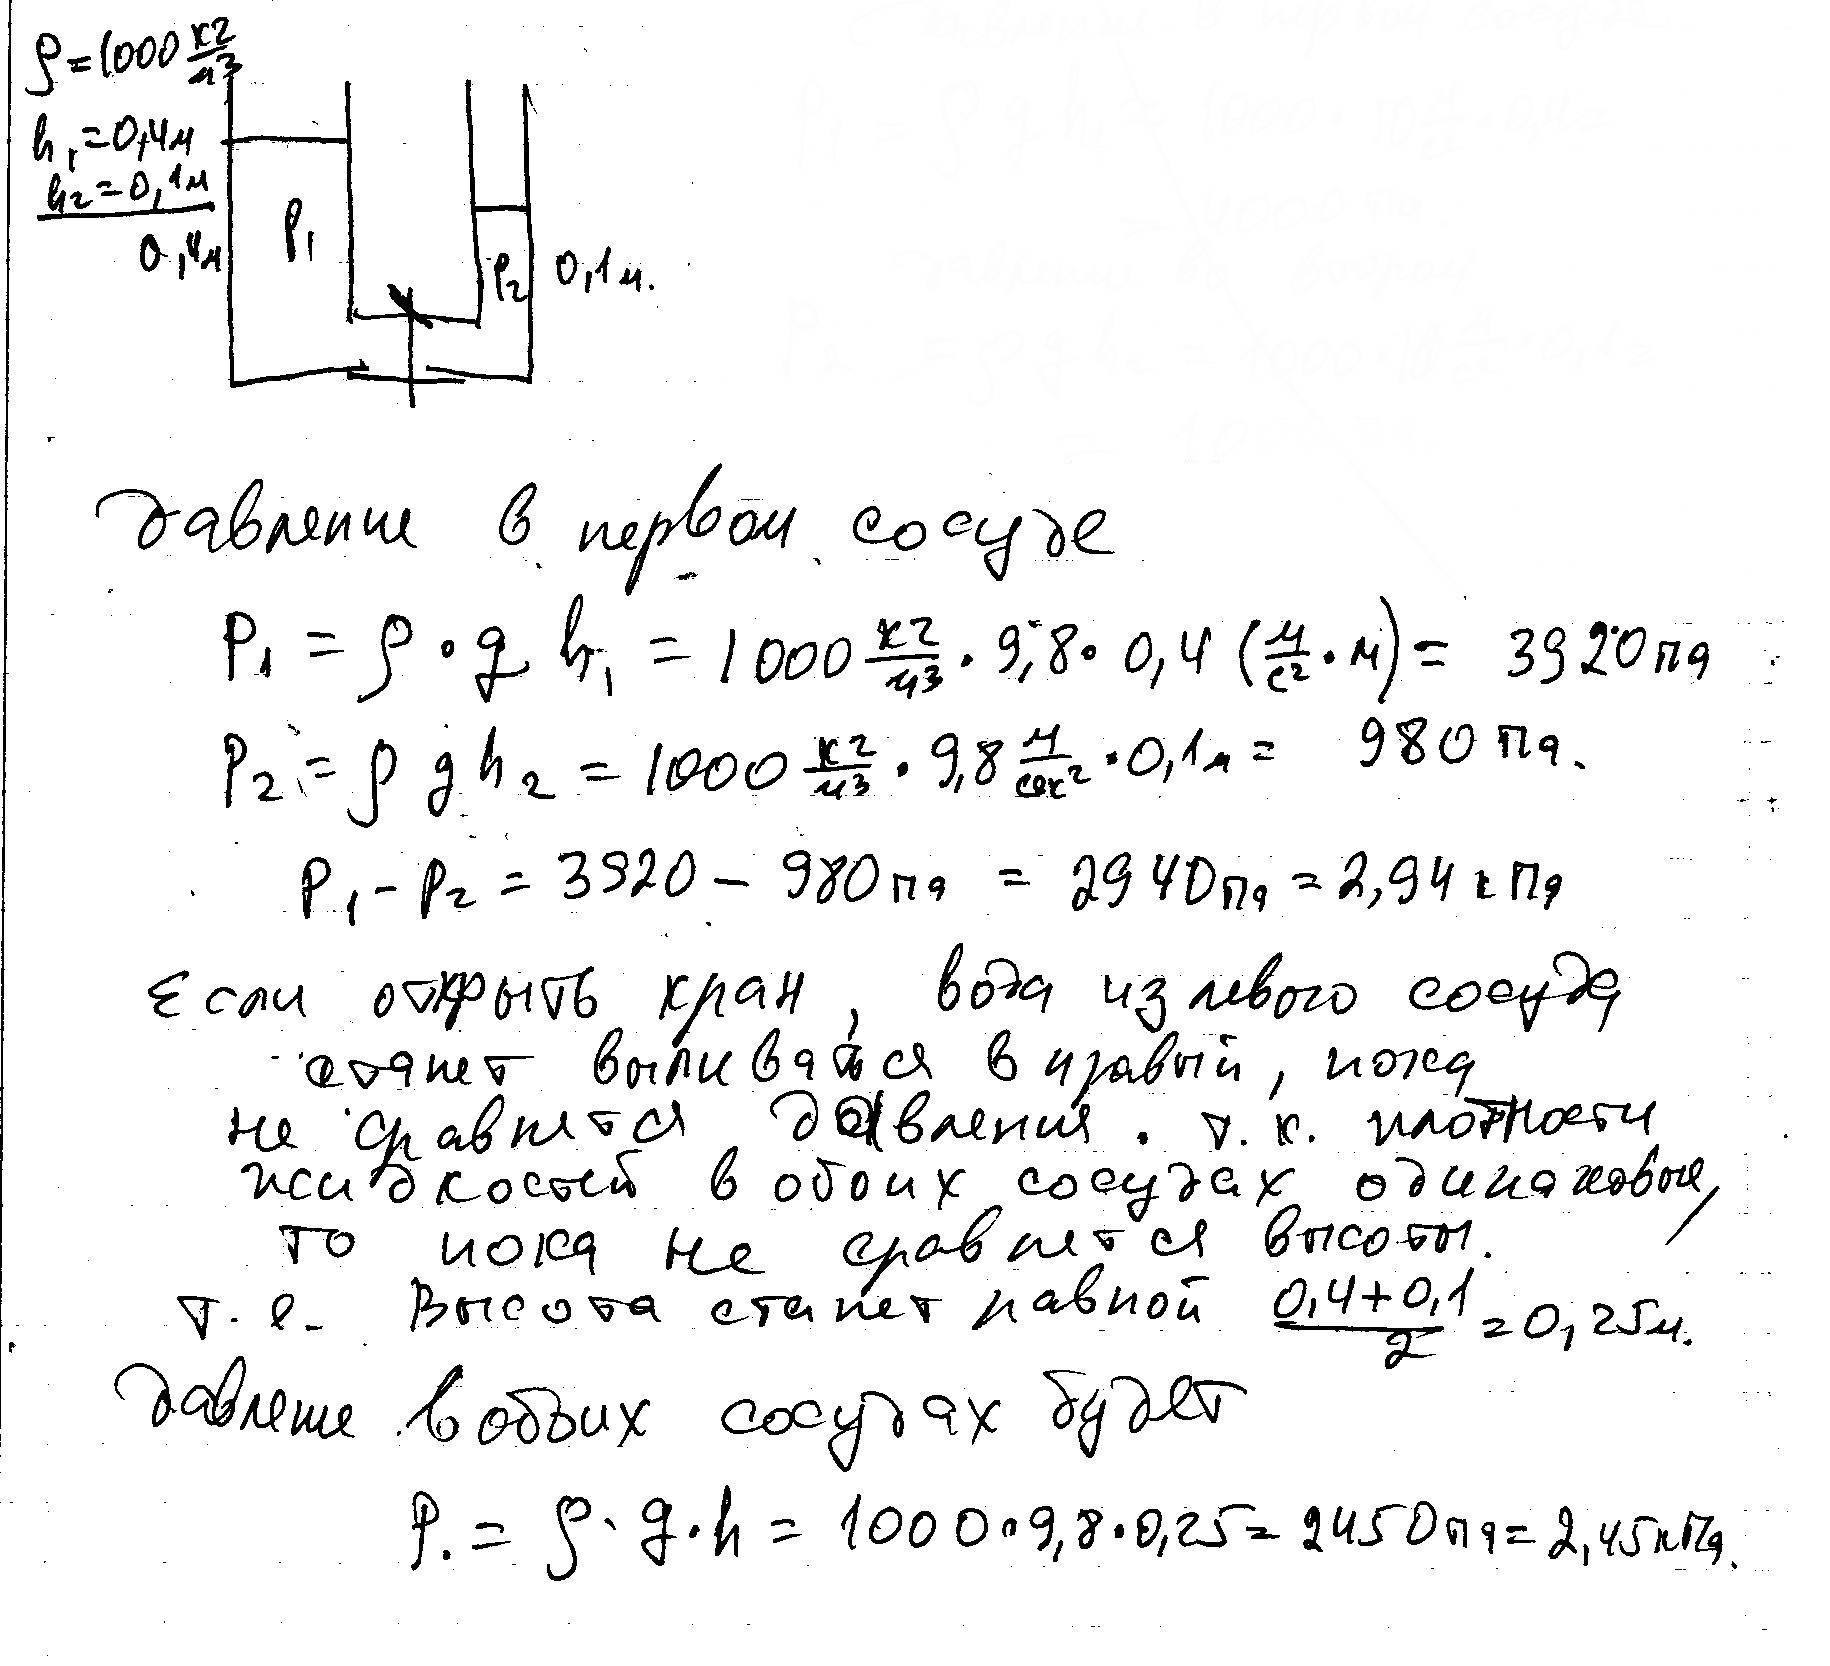 ρ=1000 кг/м3
h1=0,4м
h2=0,1м
0,4м
P1
P2
0,1м.
давление в первом сосуде
P1 = ρ · g h1 = 1000 кг/м3 · 9,8 · 0,4 (м/с2 · м) = 3920 па
P2 = ρ g h2 = 1000 кг/м3 · 9,8 м/сек2 · 0,1м = 980 Па.
P1 - P2 = 3920 - 980 па = 2940 Па = 2,94 кПа
Если открыть кран, вода из левого сосуда
станет выливаться в правый, пока
не сравнятся давления. т.к. плотности
жидкостей в обоих сосудах одинаковые,
то пока не сравнятся высоты.
т.е. Высота станет равной (0,4+0,1)/2 = 0,25м.
давление в обоих сосудах будет
P. = ρ · g · h = 1000 · 9,8 · 0,25 = 2450 па = 2,45 кПа.